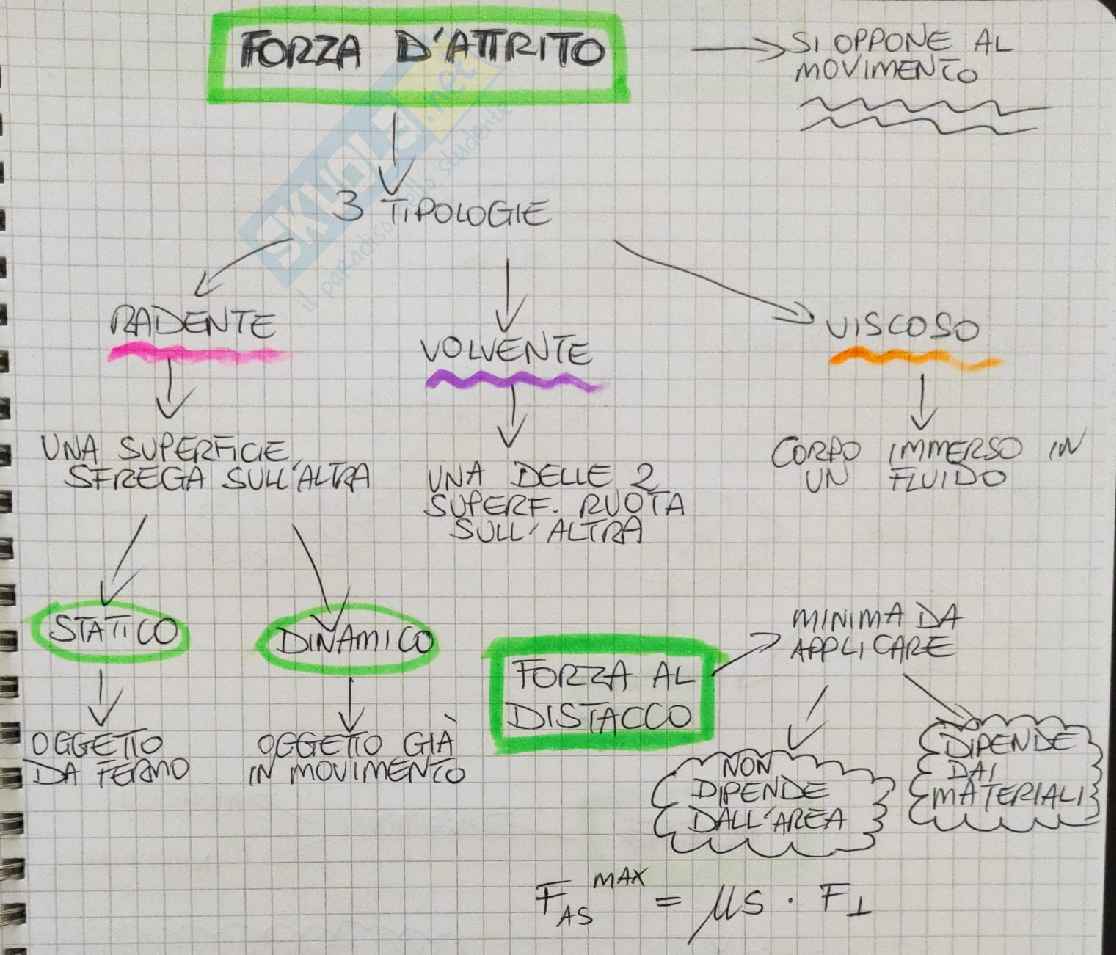 FORZA D'ATTRITO
SI OPPONE AL
MOVIMENTO
SKUOLA.net
il paradiso dello studente
3 TIPOLOGIE
RADENTE
VOLVENTE
VISCOSO
UNA SUPERFICE
SFREGA SULL'ALTRA
UNA DELLE 2
SUPERF. RUOTA
SULL'ALTRA
CORPO IMMERSO IN
UN FLUIDO
STATICO
DINAMICO
OGGETTO
DA FERMO
OGGETTO GIÀ
IN MOVIMENTO
FORZA AL
DISTACCO
MINIMA DA
APPLICARE
NON
DIPENDE
DALL'AREA
DIPENDE
DAI
MATERIALI
F_AS^MAX = μs · F⊥